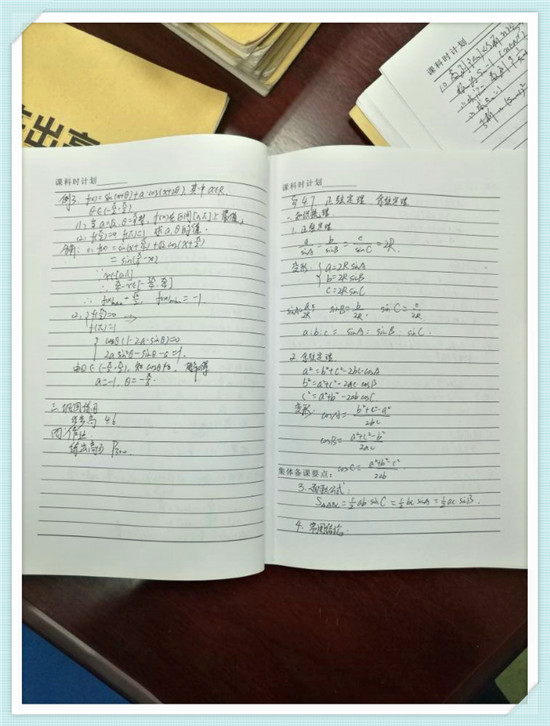 课科时计划
例3. f(x)=sin(x+θ)+a cos(x+2θ), 其中a∈R,
θ∈(-π/2, π/2)
(1) 当a=√2, θ=π/4时, f(x)在区间[0,π]上最值。
(2) f(π/2)=0, f(π)=1, 求a, θ的值.
解: (1) f(x)=sin(x+π/4)+√2 cos(x+π/2)
=sin(π/4-x)
∵ x∈[0,π]
∴ π/4-x∈[-3π/4, π/4]
∴ f(x)max=√2/2, f(x)min=-1
(2) {f(π/2)=0
f(π)=1
{cosθ(1-2a sinθ)=0
2a sin²θ-sinθ-a=1.
由θ∈(-π/2, π/2), 知cosθ≠0, 解得
a=-1, θ=-π/6.
三. 巩固练习
46
四. 作业
课科时计划
§4.7 正弦定理、余弦定理
一. 知识梳理
1. 正弦定理
a/sinA = b/sinB = c/sinC = 2R.
变形: {a=2RsinA
b=2RsinB
c=2RsinC
sinA=a/2R sinB=b/2R sinC=c/2R
a:b:c = sinA:sinB:sinC.
2. 余弦定理
a²=b²+c²-2bc·cosA
b²=a²+c²-2ac cosB
c²=a²+b²-2ab cosC
变形: cosA=(b²+c²-a²)/2bc
cosB=(a²+c²-b²)/2ac
cosC=(a²+b²-c²)/2ab
集体备课要点:
3. 面积公式:
S△ABC=½ab·sinC=½bc sinA=½ac sinB.
4. 常用结论:
课科时计划